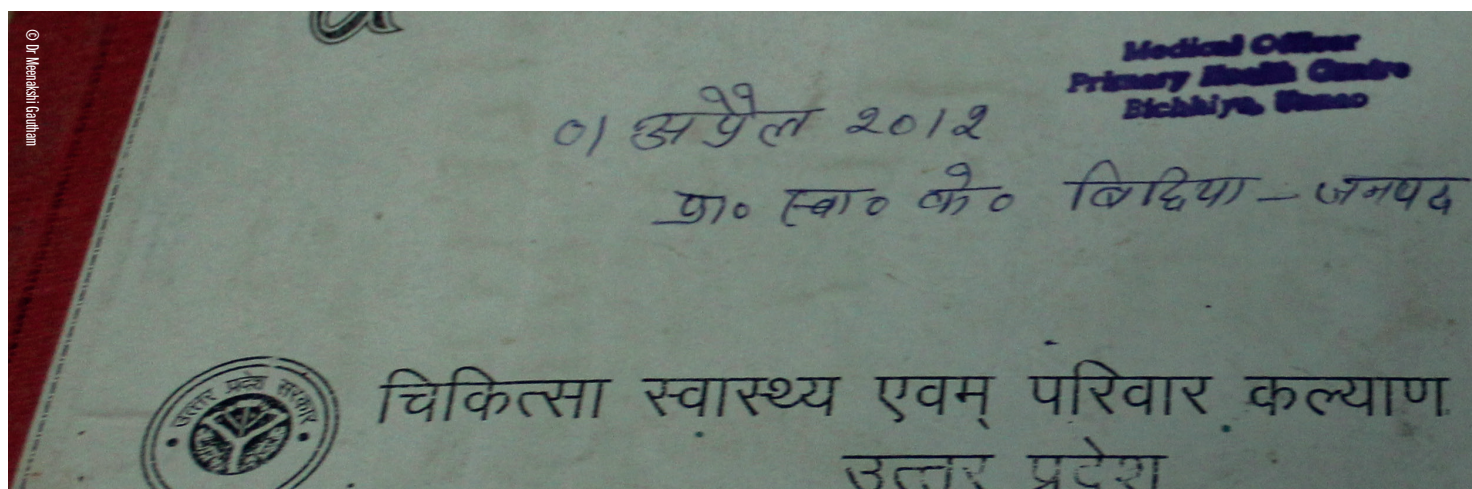 © Dr Meenakshi Gautham
Medical Officer
Primary Health Centre
Bichhiya, Unnao
01 अप्रैल 2012
प्रा० स्वा० के० बिछिया - जनपद
उत्तर प्रदेश सरकार
चिकित्सा स्वास्थ्य एवम् परिवार कल्याण
उत्तर प्रदेश